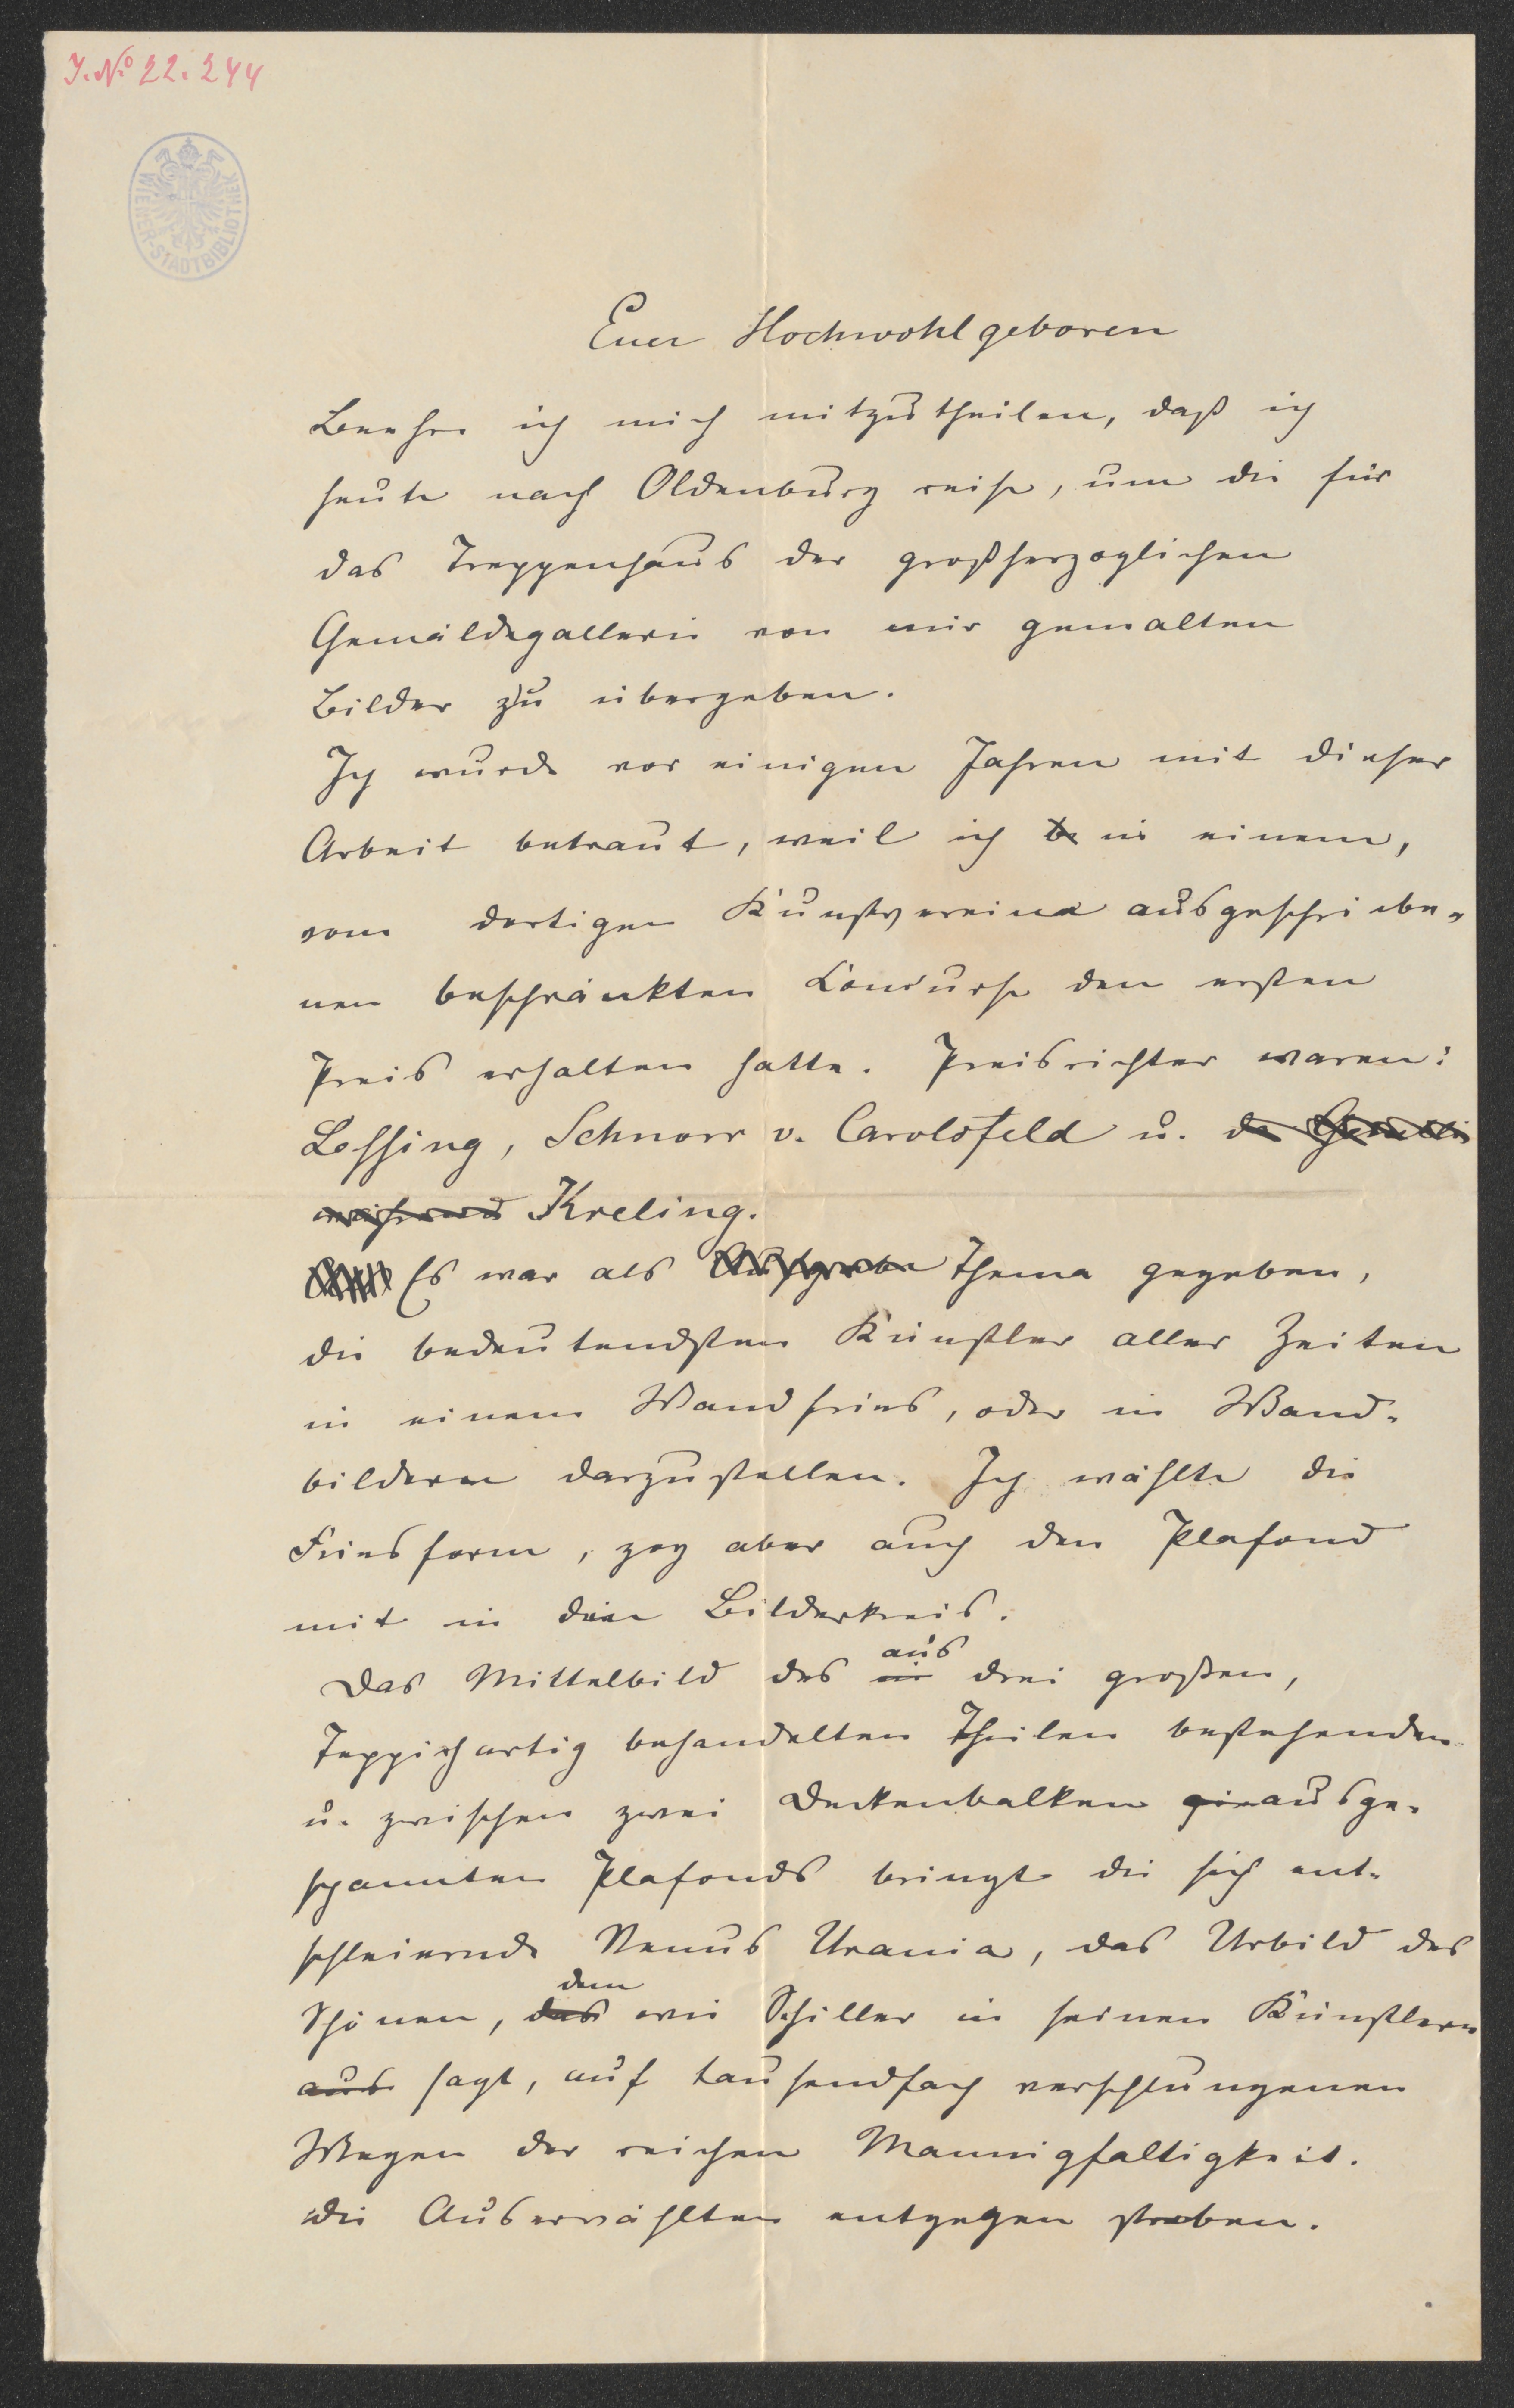 J.No 22.244
WIENER-STADTBIBLIOTHEK
Euer Hochwohlgeboren
Beehre ich mich mitzutheilen, daß ich
heute nach Oldenburg reise, um die für
das Treppenhaus der großherzoglichen
Gemäldegallerie von mir gemalten
Bilder zu übergeben.
Ich wurde vor einigen Jahren mit dieser
Arbeit betraut, weil ich be in einem,
vom dortigen Kunstvereine ausgeschriebe-
nen beschränkten Concurse den ersten
Preis erhalten hatte. Preisrichter waren:
Lessing, Schnorr v. Carolsfeld u. de
Kreling.
Es war als Aufgabe Thema gegeben,
die bedeutendsten Künstler aller Zeiten
in einem Wandfries, oder in Wand-
bildern darzustellen. Ich wählte die
Friesform, zog aber auch den Plafond
mit in den Bilderkreis.
aus
Das Mittelbild des in drei großen,
Teppichartig behandelten Theilen bestehenden
u. zwischen zwei Deckenbalken ausge-
spannten Plafonds bringt die sich ent-
schleiernde Venus Urania, das Urbild des
dem
Schönen, das wie Schiller in seinen Künstlern
aus sagt, auf tausendfach verschlungenen
Wegen der reichen Mannigfaltigkeit.
die Auserwählten entgegen streben.